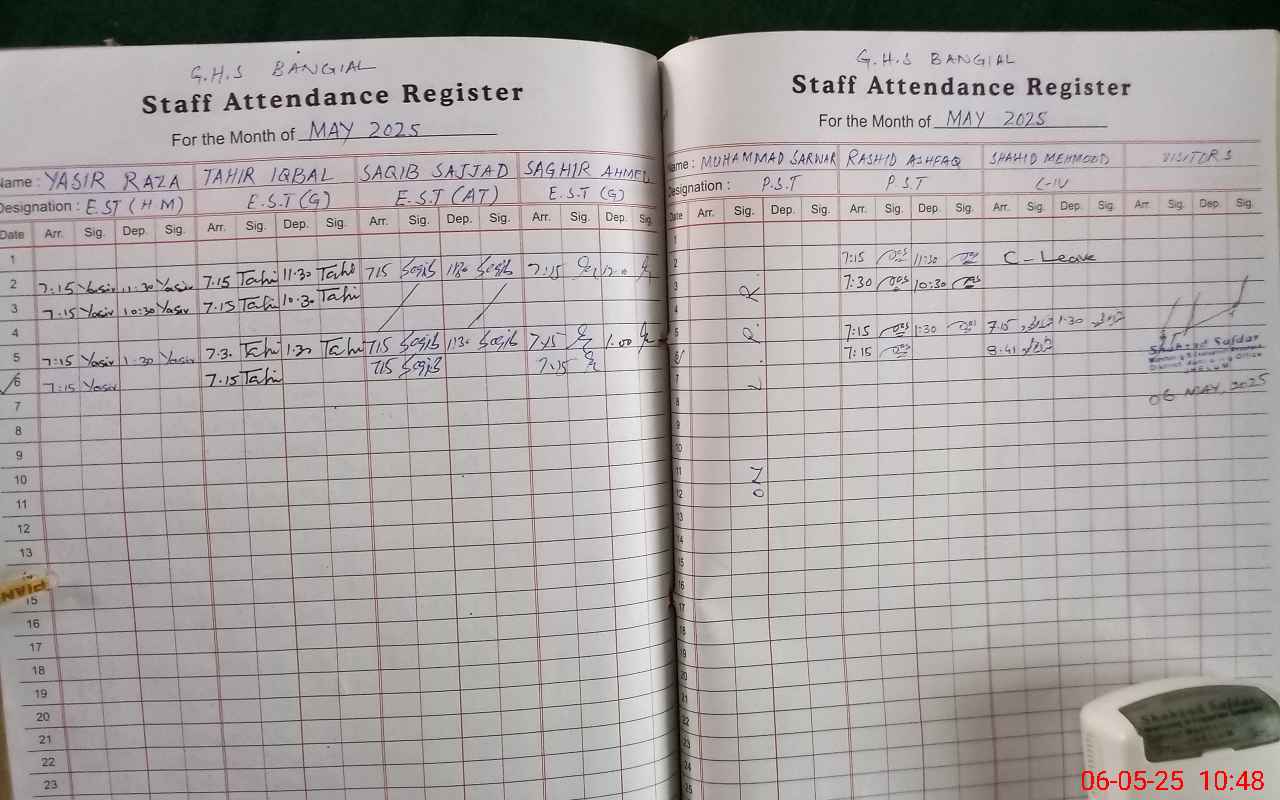 G.H.S BANGIAL
Staff Attendance Register
For the Month of MAY 2025
Name : YASIR RAZA TAHIR IQBAL SAQIB SAJJAD SAGHIR AHMED
Designation : E.ST (HM) E.S.T (G) E.S.T (AT) E.S.T (G)
Date Arr. Sig. Dep. Sig. Arr. Sig. Dep. Sig. Arr. Sig. Dep. Sig. Arr. Sig. Dep. Sig.
1
2 7:15 Yasir 11:30 Yasir 7.15 Tahir 11.30 Tahir 715 Saqib 1130 Saqib 7:15
3 7.15 Yasir 10:30 Yasir 7.15 Tahir 10.30 Tahir
4
5 7:15 Yasir 1:30 Yasir 7.30 Tahir 1.30 Tahir 715 Saqib 1:30 Saqib 7.15 1.00
6 7:15 Yasir 7.15 Tahir 715 Saqib 7.15
7
8
9
10
11
12
13
15
16
17
18
19
20
21
22
23
G.H.S BANGIAL
Staff Attendance Register
For the Month of MAY 2025
Name : MUHAMMAD SARWAR RASHID ASHFAQ SHAHID MEHMOOD VISITORS
Designation : P.S.T P.S.T C-IV
Date Arr. Sig. Dep. Sig. Arr. Sig. Dep. Sig. Arr. Sig. Dep. Sig. Arr. Sig. Dep. Sig.
1
2 7:15 11:30 C-Leave
3 7:30 10:30
4
5 7:15 1:30 7:15 1:30
6 7:15 8:41
7
8
9
10
11
12
13
14
15
16
17
18
19
20
21
22
23
24
25
Shahzad Safdar
06 MAY, 2025
Shahzad Safdar
06-05-25 10:48